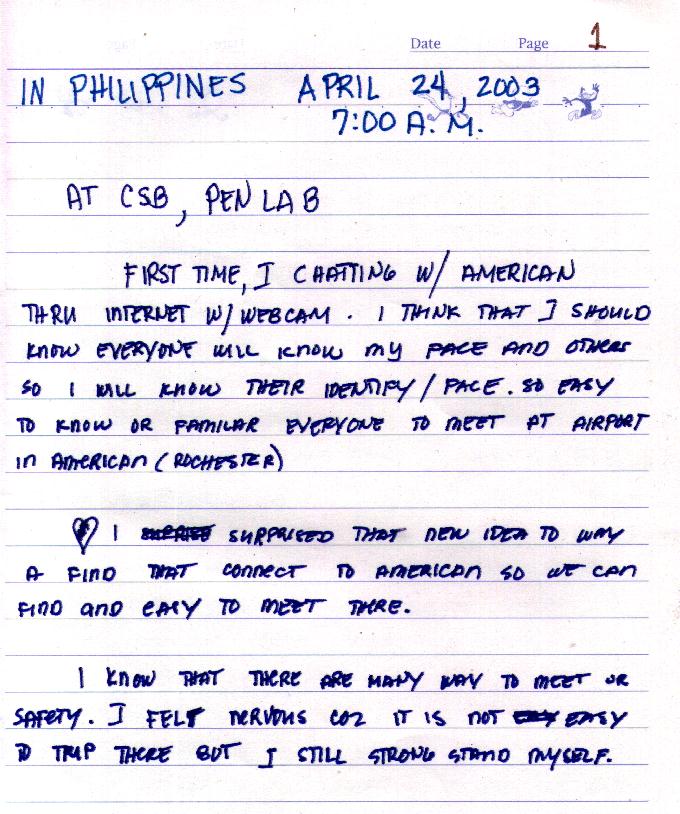 Date Page 1
IN PHILIPPINES APRIL 24, 2003
7:00 A.M.
AT CSB, PEN LAB
FIRST TIME, I CHATTING W/ AMERICAN
THRU INTERNET W/ WEBCAM. I THINK THAT I SHOULD
KNOW EVERYONE WILL KNOW MY FACE AND OTHERS
SO I WILL KNOW THEIR IDENTIFY/FACE. SO EASY
TO KNOW OR FAMILAR EVERYONE TO MEET AT AIRPORT
IN AMERICAN (ROCHESTER)
I SURPRISED THAT NEW IDEA TO WAY
A FIND THAT CONNECT TO AMERICAN SO WE CAN
FIND AND EASY TO MEET THERE.
I KNOW THAT THERE ARE MANY WAY TO MEET OR
SAFETY. I FELT NERVOUS COZ IT IS NOT EASY
TO TRIP THERE BUT I STILL STRONG STAND MYSELF.